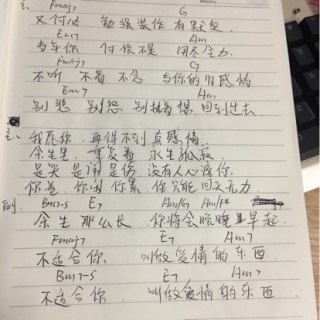 Fmaj7 G
又何必 勉强装作有默契
Em7 Am
当年你 付 不是 用尽全力
Fmaj7 G
不听 不看 不念 与你的旧感情
Em7 Am
别想 别怨 别 想回到过去
主: 我和你 再得不到真感情
余生里 重复着 永生孤寂
是哭是闹是伤没有人心疼你
你看 你闹你累 你只能回天无力
副 Bm7-5 E7 Am/G Am/F#
余生那么长 你将会晚睡早起
Fmaj7 E7 Am7
不适合你 叫做爱情的东西
Bm7-5 E7 Am7
不适合你 叫做爱情的东西